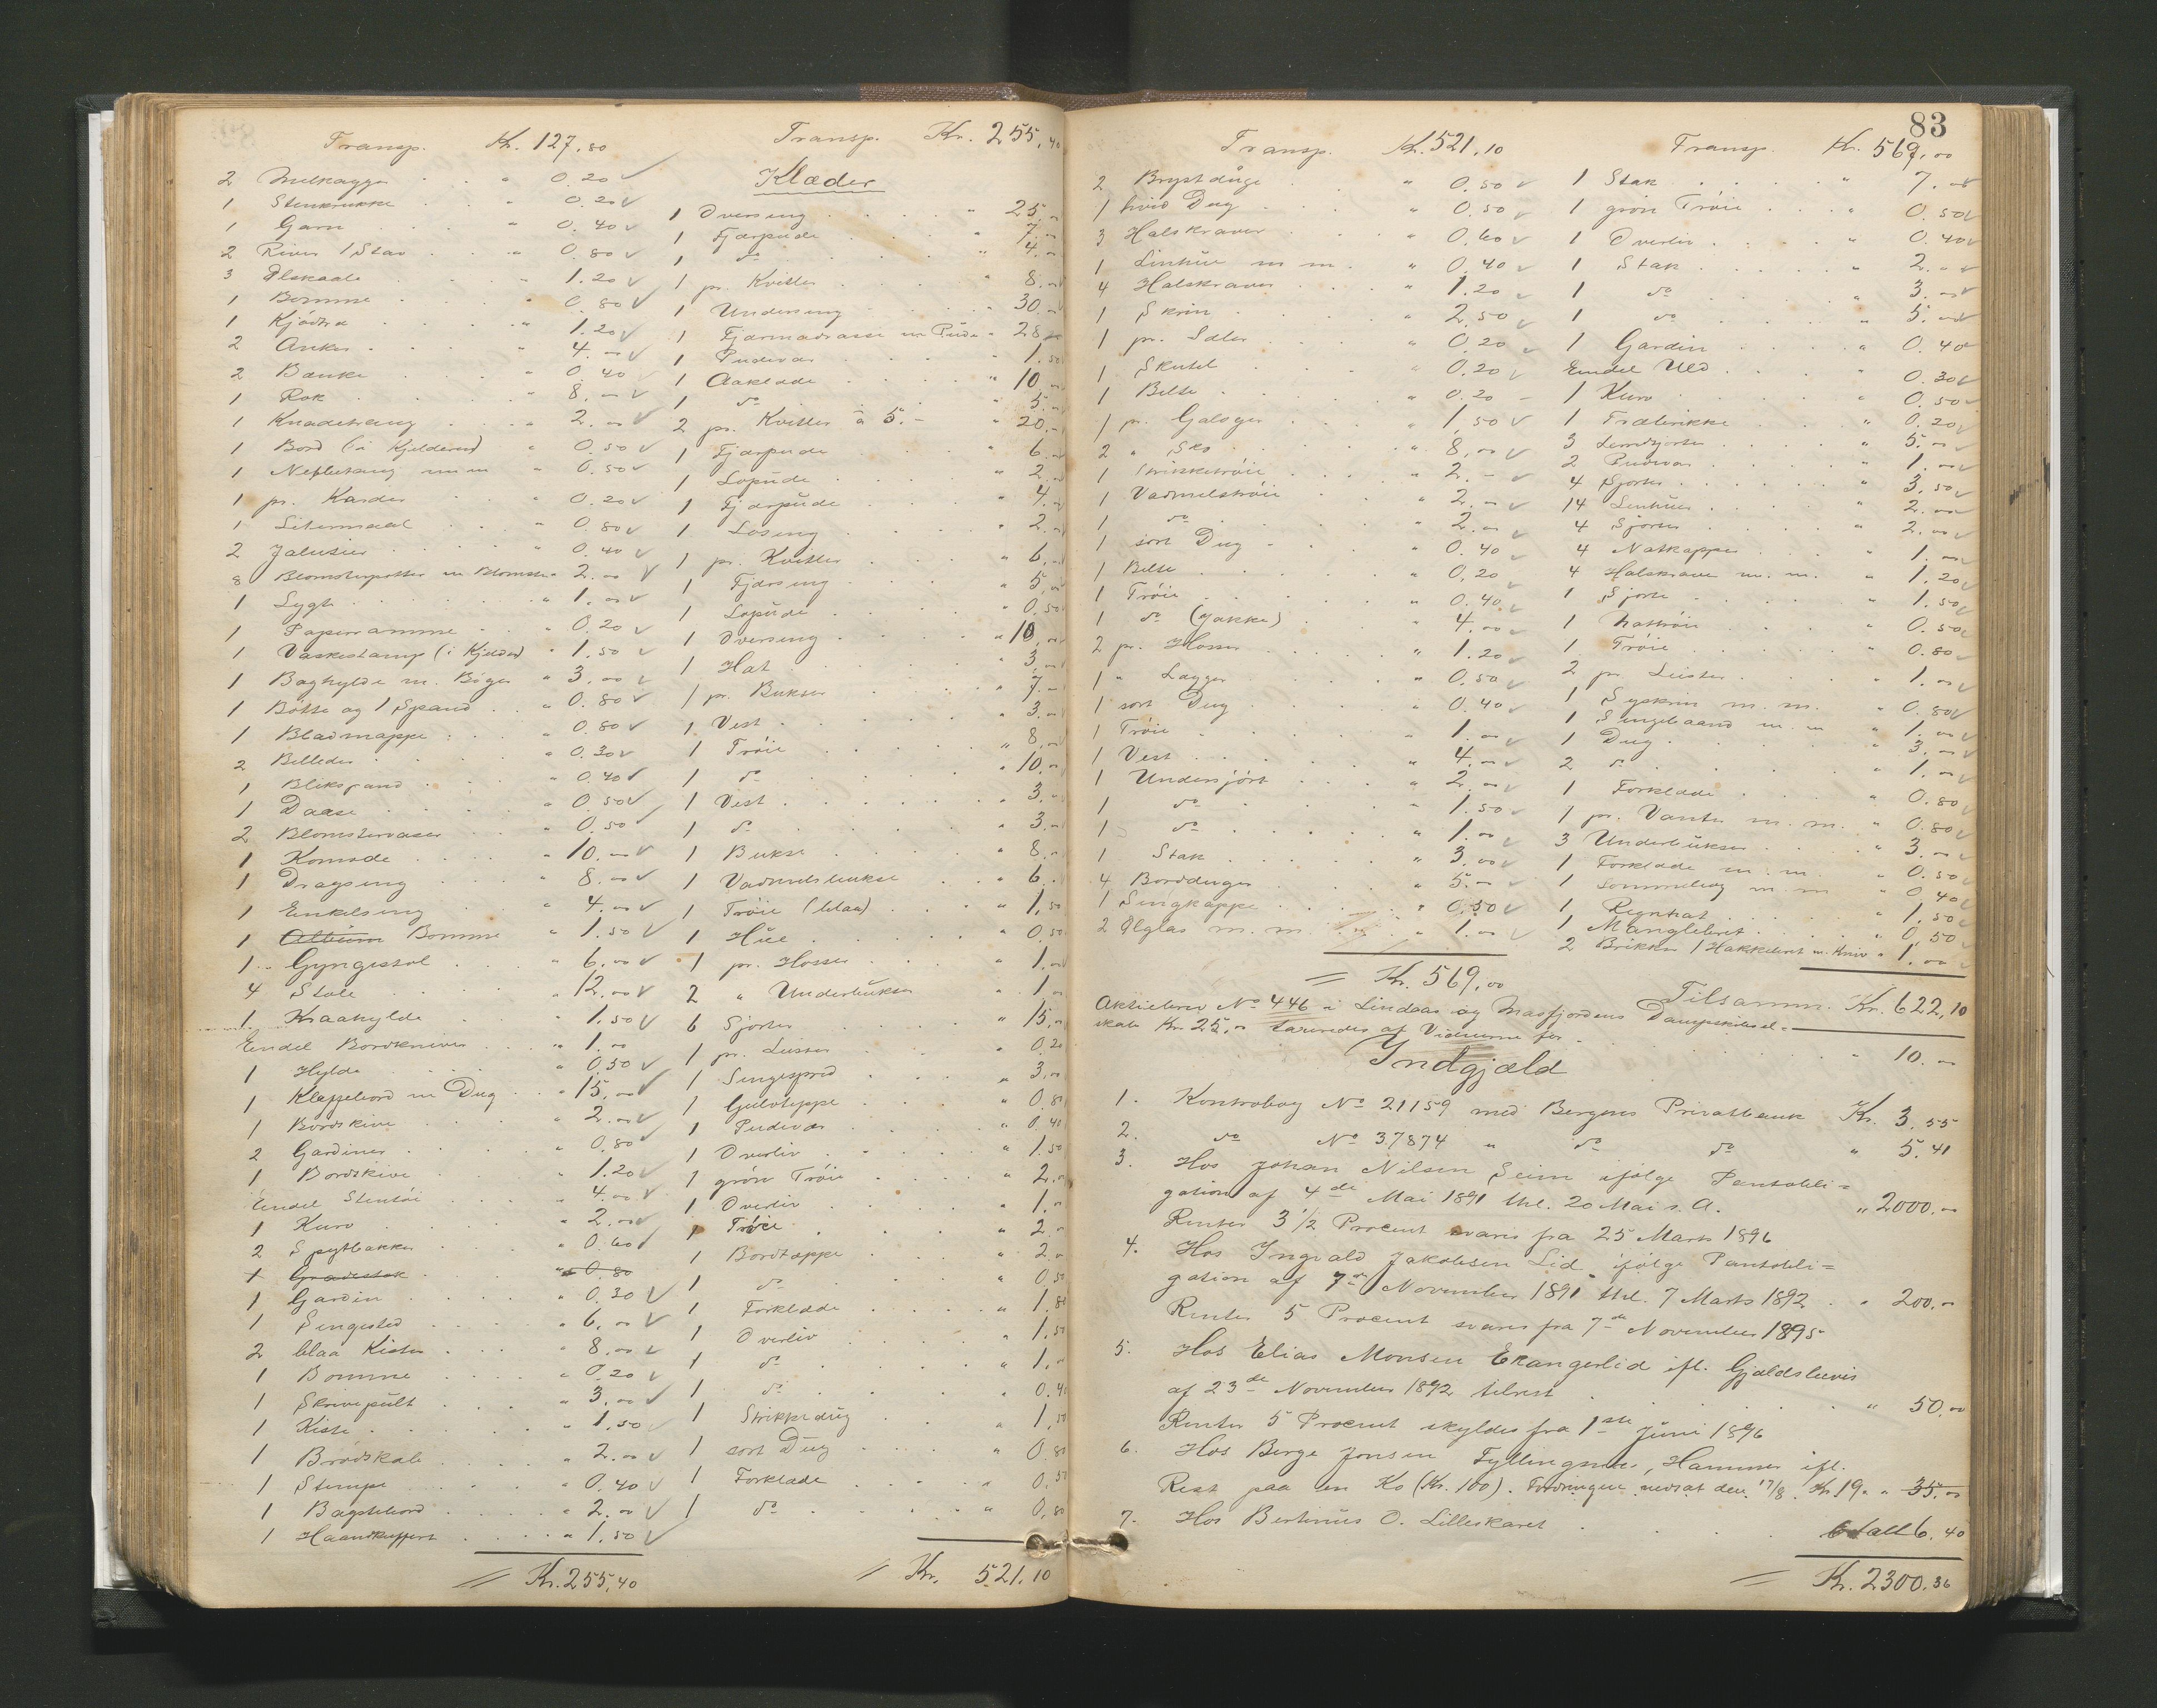 Transp. Kr. 127.80
2 Melkagger " 0.20
1 Stenkrukke " 0.20
1 Garn " 0.40
2 River 1 Stav " 0.80
3 Ølskaale " 1.20
1 Bomme " 0.80
1 Kjódtra " 1.20
2 Anker " 4.00
2 Bænke " 0.40
1 Rok " 8.00
1 Knadetraug " 2.00
1 Bord (i Kjelderen) " 0.50
1 mm " 0.50
1 pr. Karder " 0.20
1 Litermaal " 0.80
2 Jalusier " 0.40
8 Blomsterpotter m Blomster 2.00
1 Lygte " 1.00
1 Papirramme " 0.20
1 Vaskestamp (i Kjelder) " 1.50
1 Boghylde m. Bøger " 3.00
1 Bøtte og 1 Spand " 0.80
1 Bladmappe " 0.80
2 Billeder " 0.30
1 Blikspand " 0.40
1 Daase " 0.50
2 Blomstervaser " 0.50
1 Komode " 10.00
1 Dragseng " 8.00
1 Enkelseng " 4.00
1 Album Bomme " 1.50
1 Gyngestol " 6.00
4 Stole " 12.00
1 Kraahylde " 1.50
Endel Bordkniver " 1.00
1 Hylde " 0.50
1 Klappebord m Dug " 15.00
1 Bordskive " 2.00
2 Gardiner " 0.80
1 Bordskive " 1.20
Endel Stentøi " 4.00
1 Kurv " 2.00
2 Spytbakker " 0.60
1 Gradestok " 0.80
1 Gardin " 0.30
1 Sengested " 6.00
2 blaa Kister " 8.00
1 Bomme " 0.20
1 Skrivepult " 3.00
1 Kiste " 1.50
1 Brødskab " 2.00
1 Stampe " 0.40
1 Bagstebord " 2.00
1 Haandkuffert " 1.50
= Kr. 255,40
Transp. Kr. 255,40
Klæder
1 Overseng " 25.00
1 Fjærpude " 7.00
1 do " 4.00
1 pr. Kvitler " 8.00
1 Underseng " 30.00
1 Fjærmadrasse m Pude " 28
1 Pudevar 1.50
1 Aaklæde " 10.00
1 do " 5.00
2 pr. Kvitler à 5.- " 20.00
1 Fjærpude " 6.00
1 Lopude " 2.00
1 Fjærpude " 4.00
1 Loseng " 2.00
1 pr. Kvitler " 6.00
1 Fjærseng " 5.00
1 Lopude " 0.50
1 Overseng " 10.00
1 Hat 3.00
1 pr. Bukser 7.00
1 Vest 3.00
1 Trøie " 8.00
1 do " 10.00
1 Vest " 3.00
1 do " 3.00
1 Bukse " 8.00
1 Vadmelsbukse " 6.
1 Trøie (blaa) " 1,50
1 Hue " 0,50
1 pr. Hosser " 1.00
2 " Underbukser " 1.00
6 Sjorter " 15.00
1 pr. Lester " 0.20
1 Sengespred " 3.00
1 Gulvteppe " 0.80
1 Pudevar " 0.40
1 Overliv " 1.50
1 grøn Trøie " 2.00
1 Overliv " 1.00
1 Trøie " 2.00
1 Bordtæppe " 2.00
1 do " 0.50
1 Forklæde " 1.80
1 Overliv " 1.50
1 do " 1.00
1 do " 0.40
1 Strikkedug " 1.50
1 sort Dug " 0.80
1 Forklæde " 0.50
1 do " 0,80
= Kr. 521.10
83
Transp. Kr. 521.10
2 Brystduge " 0.50
1 hvid Dug " 0.50
3 Halskraver " 0.60
1 Linhue m m. " 0.40
4 Halskraver " 1.20
1 Skrin " 2.50
1 pr. Seler " 0.20
1 Skutel " 0.20
1 Belte " 0.20
1 pr. Galoger " 1.50
2 " Sko " 8.00
1 Strikketrøie " 2.-
1 Vadmelstrøie " 2.00
1 do " 2.00
1 sort Dug " 0.40
1 Belte " 0.20
1 Trøie " 0.40
1 do (Jakke) " 4.00
2 pr. Hosser " 1.20
1 " Lagger " 0.50
1 sort Dug " 0.40
1 Trøie " 1.00
1 Vest " 4.00
1 Undersjørt " 2.00
1 do " 1.50
1 do " 1.00
1 Stak " 3.00
4 Bordduger " 5.00
1 Sengkappe " 0.50
2 Ølglas m. m " 1.00
= Kr. 569,00
Transp. Kr. 569,00
1 Stak " 7.00
1 grøn Trøie " 0.50
1 Overliv " 0.40
1 Stak " 2.00
1 do " 3.00
1 do " 5.00
1 Gardin " 0.40
Endel Uld " 0.30
1 Kurv " 0.50
1 Træbrikke " 0.20
3 " 5.00
2 Pudevar " 1.00
4 Sjorter " 3.50
14 Linhuer " 2.00
4 Sjorter " 2.00
4 Natkapper " 1.00
4 Halskraver m. m. " 1.20
1 Sjorte " 1.50
1 Nattrøie " 0.50
1 Trøie " 0.80
2 pr. Leister " 1.00
1 Syskrin m. m. " 0.80
1 m. m " 1.00
1 Dug " 3.00
2 do " 1.00
1 Forklæde " 0.80
1 pr. Vanter m. m. " 0.80
3 Underbukser " 3.00
1 Forklæde m. m. " 0.50
1 Sommertøy m. m " 0.40
1 Regnhat " 1.50
1 Manglebret " 0,50
2 Brikker 1 Hakkebret m. Kniv " 1.00
Tilsamm. Kr. 622,10
Aktiebrev No 446 i Lindaas og Masfjordens Dampskibssel-
skab Kr. 25.00 taxeredes af Vidnerne for " 10.00
Indgjæld
1. Kontrabog No 21159 med Bergens Privatbank Kr. 3.55
2. do No 37874 " do do " 5.41
3. Hos Johan Nilsen Seim ifølge Pantobli=
gation af 4de Mai 1891 thl. 20 Mai s. A. " 2000.00
Renter 3 1/2 Procent svares fra 25 Marts 1896
4. Hos Ingvald Jakobsen Lid ifølge Pantobli=
gation af 7de November 1891 thl. 7 Marts 1892 " 200.00
Renter 5 Procent svares fra 7de November 1895
5. Hos Elias Monsen Ekangerlid ifl. Gjældsbevis
af 23de November 1892 tilrest " 50.00
Renter 5 Procent skyldes fra 1ste Juni 1896
6. Hos Berge Jonsen Fyllingsnes, Hammer ifl.
Rest paa en Ko (Kr. 100). Fordringen nedsat den 17/8 Kr 19. " 35.00
7. Hos Bertinus O. Lilleskaret 6.40
= Kr. 2300.36